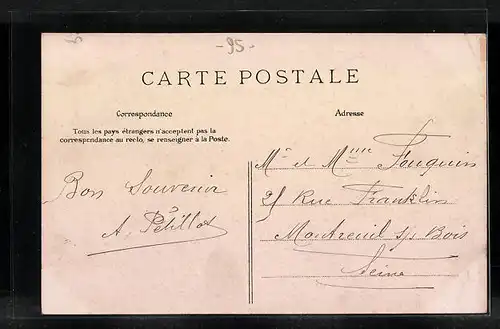 -95-
CARTE POSTALE
Correspondance
Tous les pays étrangers n'acceptent pas la
correspondance au recto, se renseigner à la Poste.
Bon Souvenir
A. Pétillot
Adresse
Mr et Mme Fouquin
21 Rue Franklin
Montreuil s/s Bois
Seine